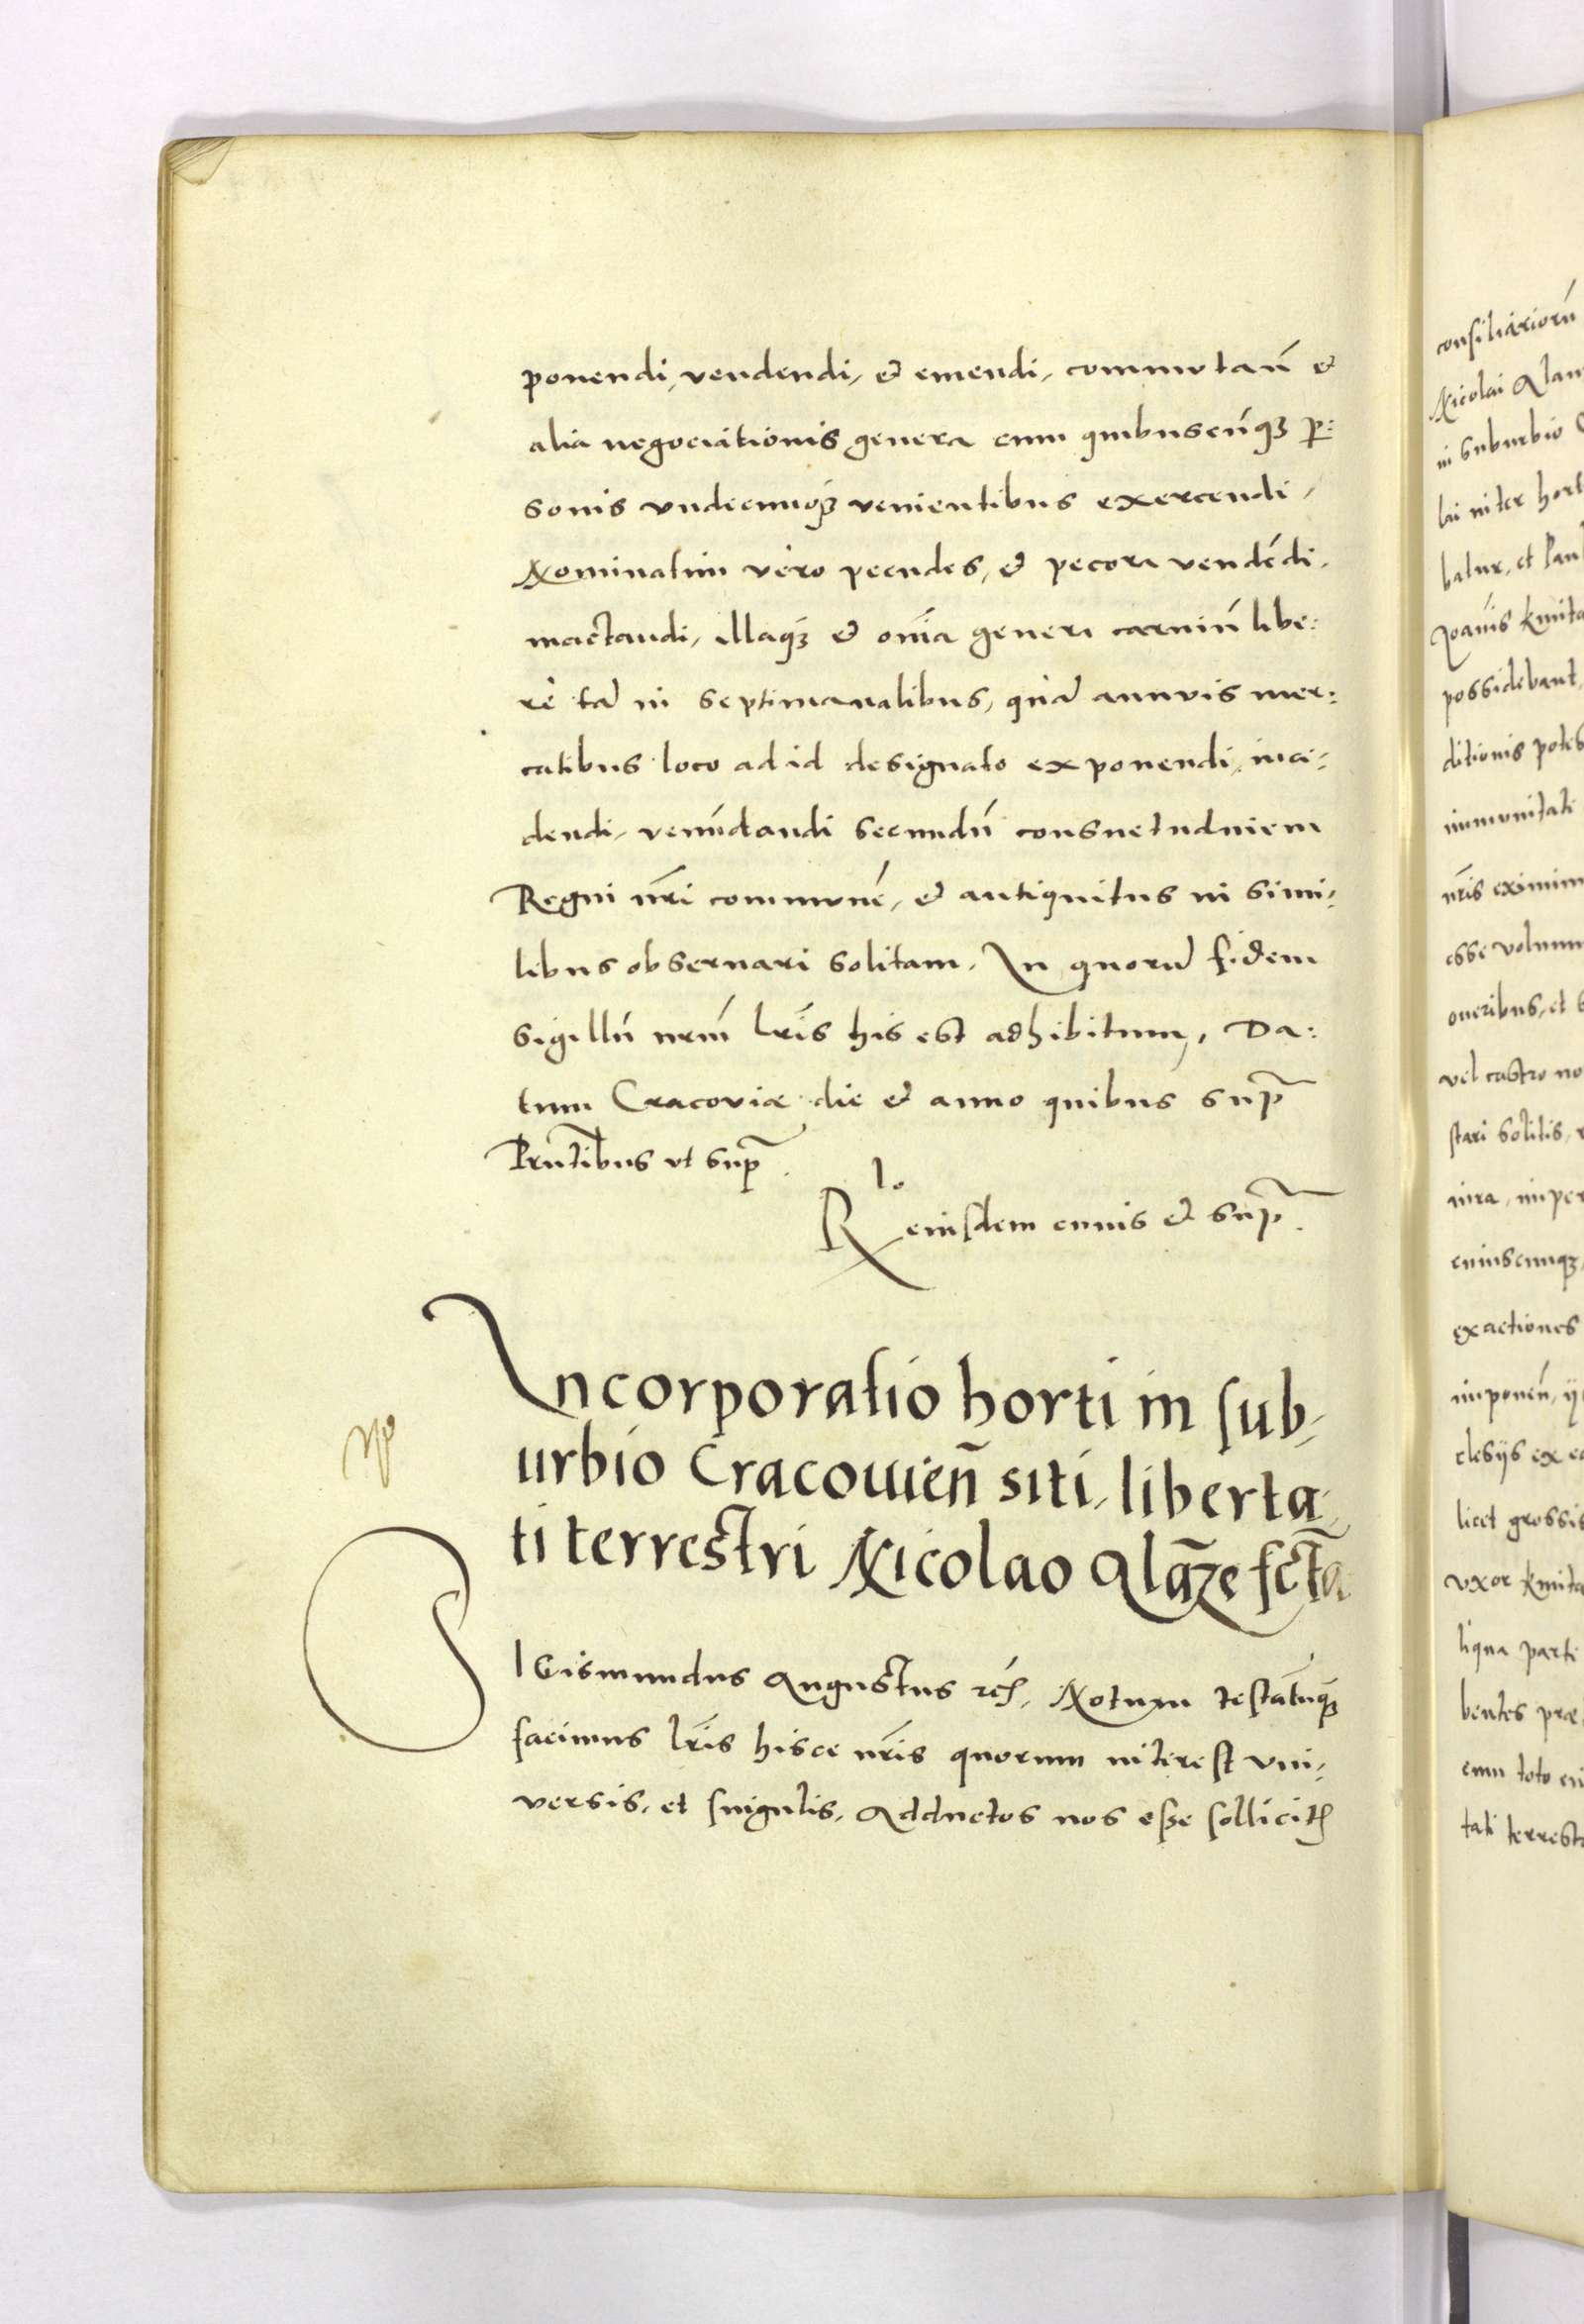 ponendi, vendendi, et emendi, commutañ et
alia negociationis genera cum quibuscūq3 per:
sonis undecunq3 venientibus exercendi,
Nominatim vero pecudes, et pecora vendēdi,
mactandi, illaq3 et oīa genera carniū libe:
re tā in septimanalibus, quā annuis mer:
catibus loco ad id designato exponendi, inci:
dendi, venūdandi secundū consuetudinem
Regni nr̄i communē, et antiquitus in simi:
libus observari solitam. In quorū fidem
sigillū nrm̄ lr̄is his est adhibitum. Da:
tum Cracoviæ die et anno quibus sup̄
Prn̄tibus ut sup̄.
Ro eiusdem cuius et sup̄.
Incorporatio horti in sub,
urbio Cracovieñ siti, liberta,
ti terrestri Nicolao Glāze fctā
SIGismundus Augustus rc̄. Notum testatūq3
facimus lr̄is hisce nr̄is quorum interest uni,
versis, et singulis, Adductos nos esse sollicit
consiliariorū
Nicolai Glan
in suburbio
lai inter hort
batur, et Paul
Joānis Kmita
possidebant,
ditionis potes
immunitati
nr̄is eximim
esse volumu
oneribus, et s
vel castro no
stari solitis,
iura, imper
cuiuscunq3,
exactiones
imponeñ, ij
clesijs ex ea
licet grossis
uxor Kmita
liqua parti
bentes præ
cum toto
tati terrest